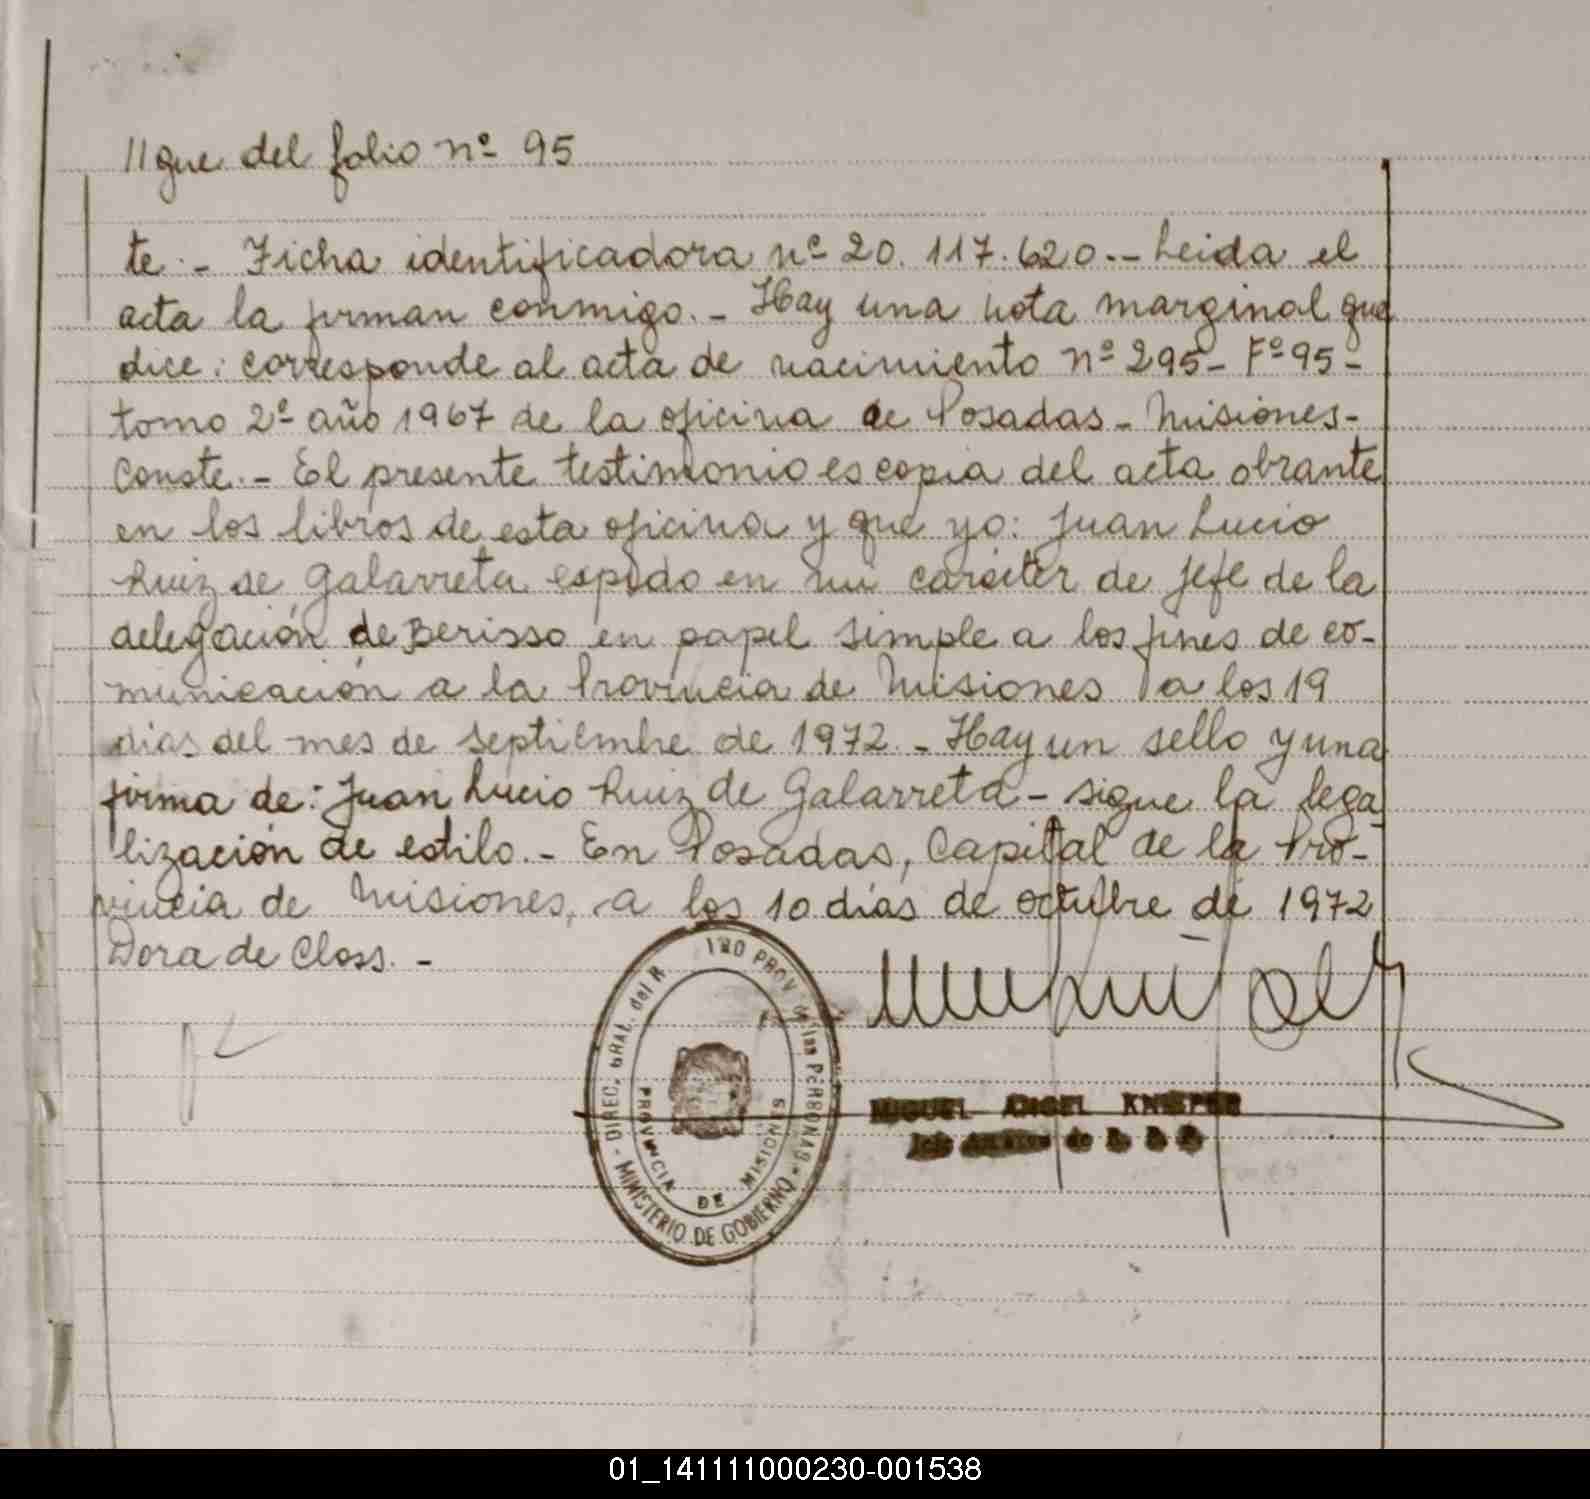 //gue del folio nº 95
te.- Ficha identificadora nº 20.117.620.-- Leida el
acta la firman conmigo.- Hay una nota marginal que
dice: corresponde al acta de nacimiento nº 295- Fº 95-
tomo 2º año 1967 de la oficina de Posadas- Misiones-
Conste.- El presente testimonio es copia del acta obrante
en los libros de esta oficina y que yo: Juan Lucio
Ruiz de Galarreta espido en mi carácter de Jefe de la
delegación de Berisso en papel simple a los fines de co-
municación a la Provincia de Misiones a los 19
dias del mes de septiembre de 1972.- Hay un sello y una
firma de: Juan Lucio Ruiz de Galarreta- sigue la lega-
lización de estilo.- En Posadas, Capital de la Pro-
vincia de Misiones, a los 10 días de octubre de 1972
Dora de Closs.-
DIREC. GRAL. del R PROV. las PERSONAS
- MINISTERIO DE GOBIERNO -
PROVINCIA DE MISIONES
MIGUEL ANGEL
01_141111000230-001538